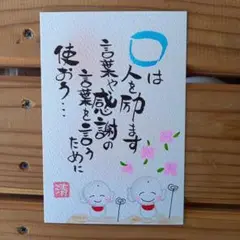 口は
人を励ます
言葉や感謝の
言葉を言う
ために
使おう…